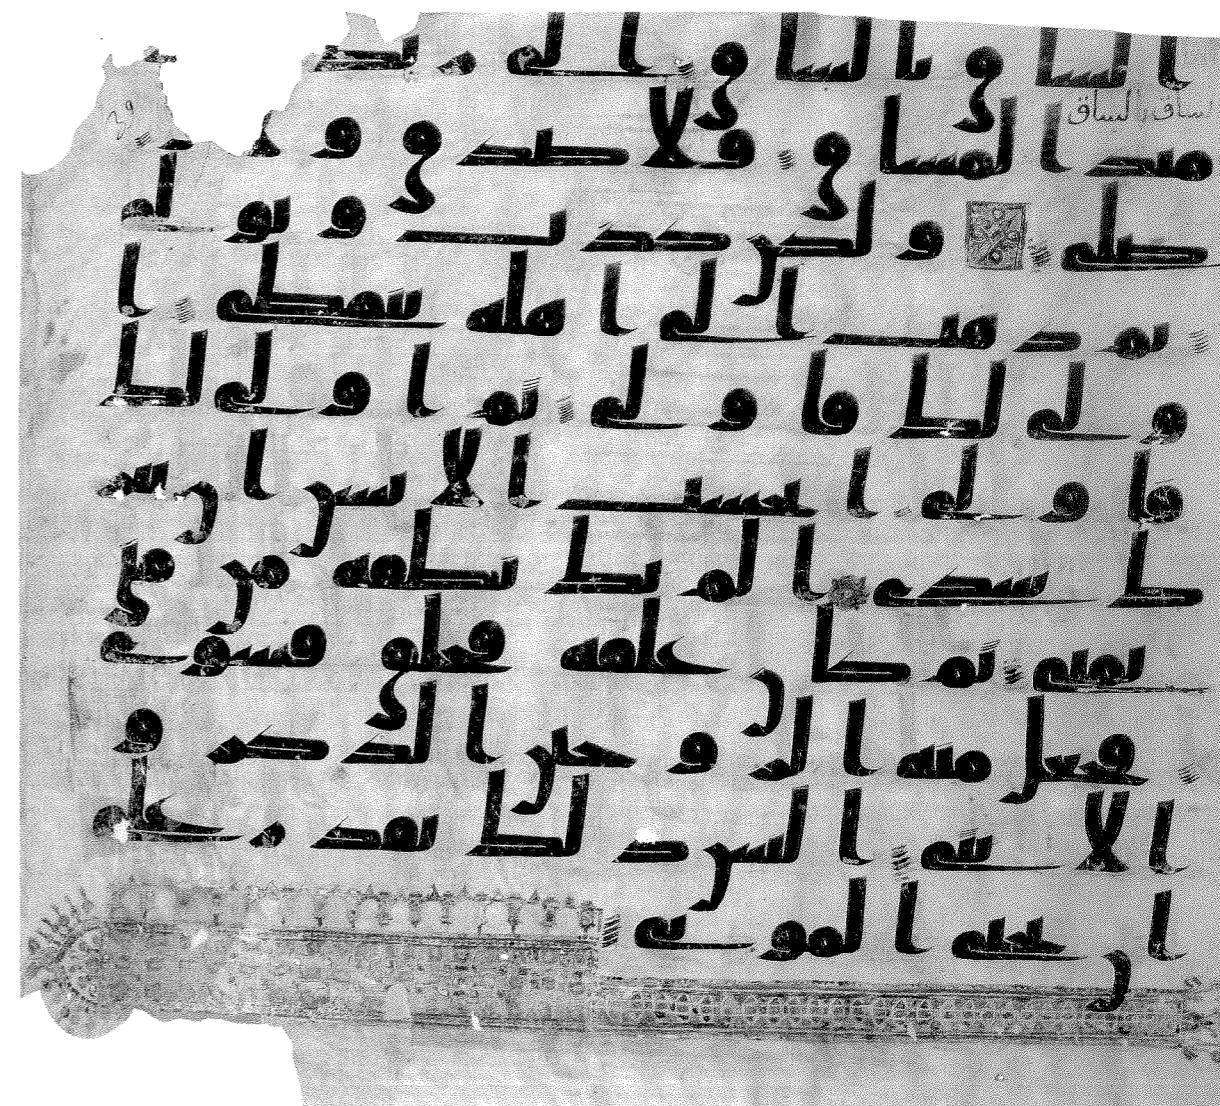 الساق بالساق الى ربك
الساق الساق
مئذ المساق فلا صدق و
صلى ولكن كذب وتولى
ثم ذهب الى اهله يتمطى ا
ولى لك فاولى ثم اولى لك
فاولى ايحسب الانسن ان يتر
ك سدى الم يك نطفة من مني
يمنى ثم كان علقة فخلق فسوى
فجعل منه الزوجين الذكر و
الانثى اليس ذلك بقدر على
ان يحى الموتى